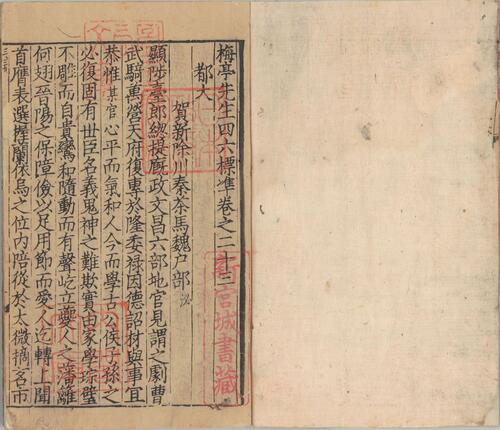 梅亭先生四六標準卷之二十三
都大
賀新除川秦茶馬魏戶部
顯陟臺郎緫提厩政文昌六部地官見謂之劇曹
武騎萬營天府復專於隆委祿因德詔材與事宜
恭惟某官心平而氣和人今而學古公侯子孫之
必復固有世臣名義鬼神之難欺實由家學琮璧
不雕而自貴鸞和隨動而有聲屹立夔人之藩離
何翅晉陽之保障儉以足用節而愛人迄轉上聞
首膺表選握蘭依烏之位內陪從於太微摘名市
新宮城書藏